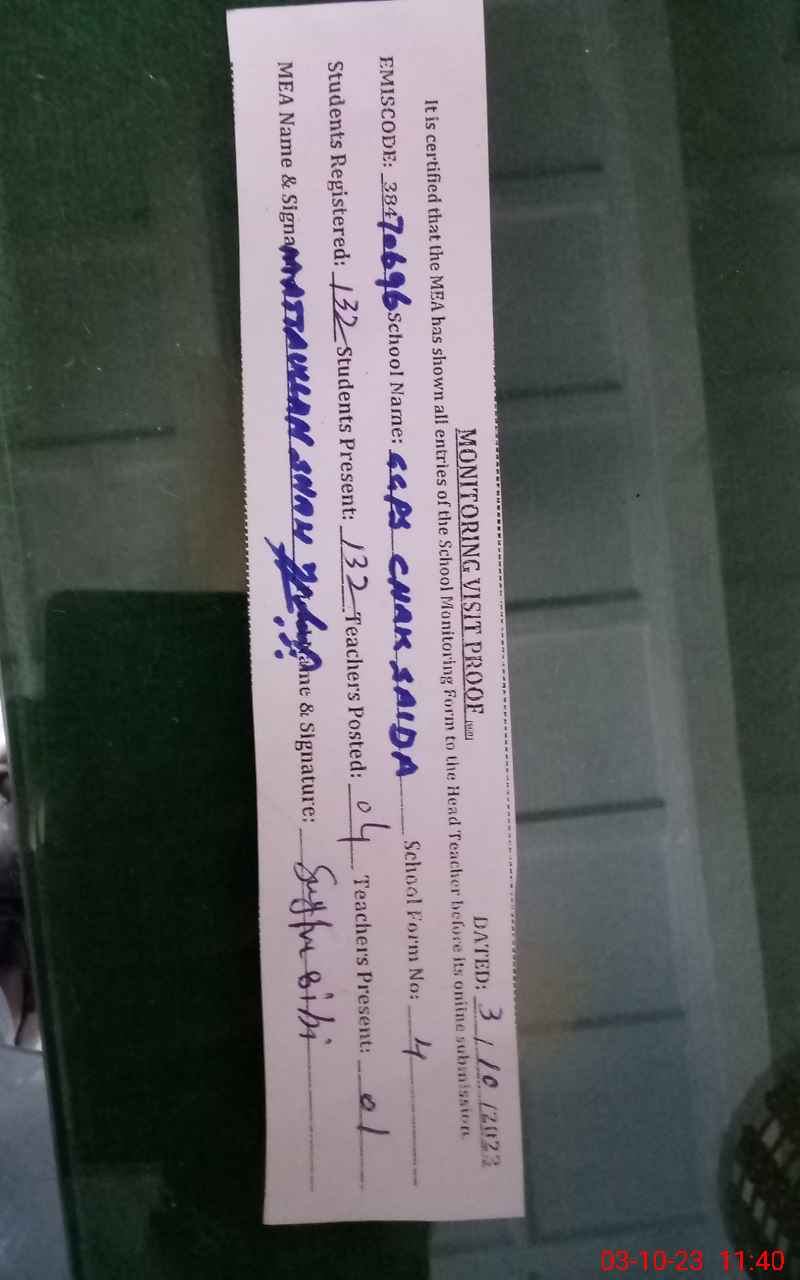 MONITORING VISIT PROOF
DATED: 3/10/2023
It is certified that the MEA has shown all entries of the School Monitoring Form to the Head Teacher before its online submission.
EMISCODE: 38470696 School Name: GGPS CHAK SAIDA School Form No: 4
Students Registered: 132 Students Present: 132 Teachers Posted: 04 Teachers Present: 01
MEA Name & Signa MATIULLAH SHAH ame & Signature: Bibi
03-10-23 11:40